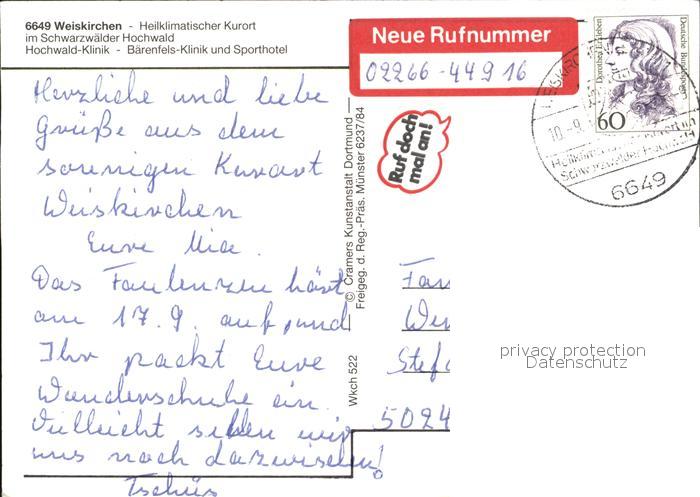 6649 Weiskirchen - Heilklimatischer Kurort
im Schwarzwälder Hochwald
Hochwald-Klinik - Bärenfels-Klinik und Sporthotel
Neue Rufnummer
02266-449 16
Ruf doch
mal an!
Dorothea Erxleben
Deutsche Bundespost
60
10.-9.
6649
Herzliche und liebe
Grüße aus dem
sonnigen Kurort
Weiskirchen
Eure Mia.
Das Faulenzen hört
am 17.9. auf, und
Ihr packt Eure
Wanderschuhe ein.
Vielleicht sehen wir
uns noch dazwischen!
Tschüs
© Cramers Kunstanstalt Dortmund —
Freigeg. d. Reg.-Präs. Münster 6237/84
Wkch 522
Fam
We
Stef
5024
privacy protection
Datenschutz